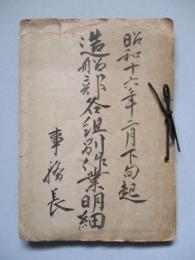 昭和十六年二月下旬起
造船部各組別作業明細
事務長